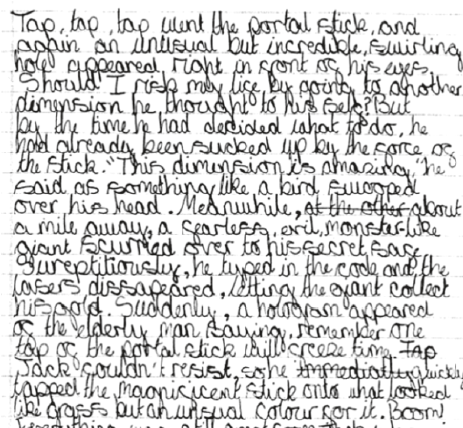 Tap, tap, tap went the portal stick, and
again an unusual but incredible, swirling
hole appeared right in front of his eyes.
Should I risk my life by going to another
dimension he thought to his self? But
by the time he had decided what to do, he
had already been sucked up by the force of
the stick. "This dimension is amazing," he
said as something like a bird swooped
over his head. Meanwhile, at the other about
a mile away, a fearless, evil, monster-like
giant scurried over to his secret safe.
Sureptitiously, he typed in the code and the
lasers dissapeared, letting the giant collect
his gold. Suddenly, a hologram appeared
of the elderly man saying, remember one
tap of the portal stick will freeze time. Tap
Jack couldn't resist, so he immediatly quickly
tapped the magnificent stick onto what looked
like grass but an unusual colour for it. Boom!